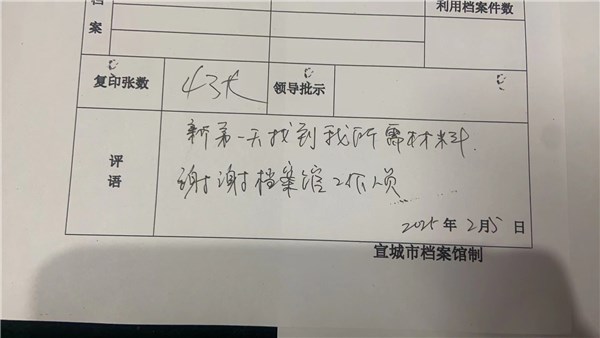 档
案
利用档案件数
复印张数 43张 领导批示
评
语
新年第一天找到我所需材料.
谢谢档案馆工作人员
2025年2月5日
宣城市档案馆制